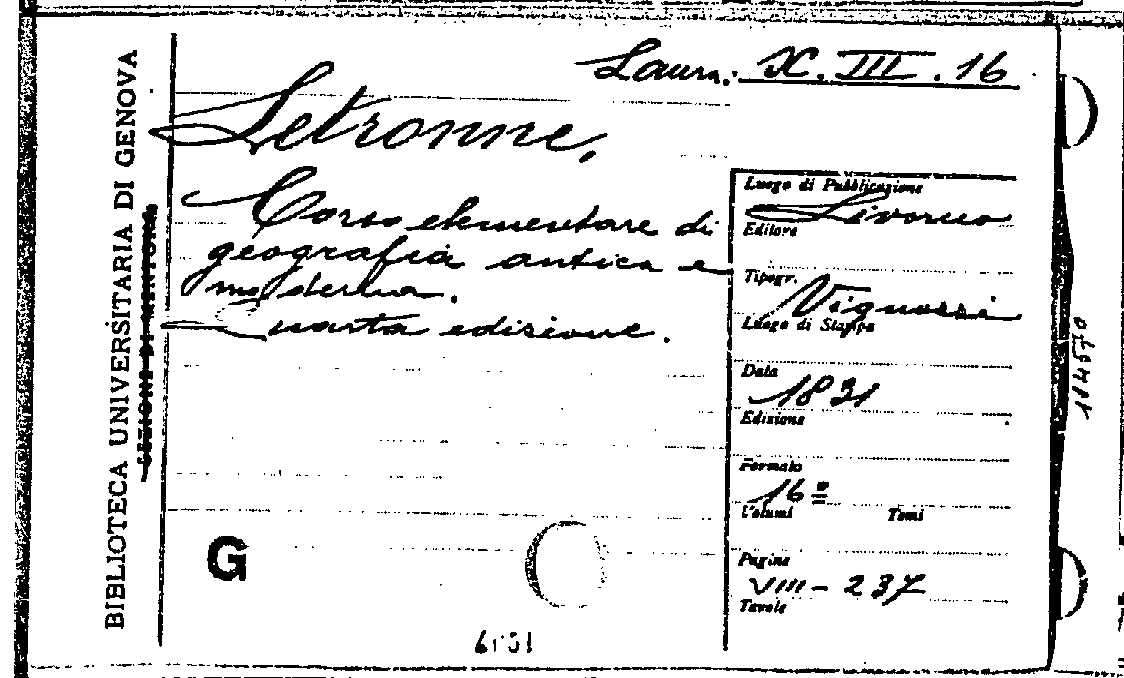 Laura: X. III. 16
Letronne,
Corso elementare di
geografia antica e
moderna.
Quarta edizione.
BIBLIOTECA UNIVERSITARIA DI GENOVA
SEZIONE DI MONTURA
Luogo di Pubblicazione
Livorno
Editore
Tipogr.
Vignozzi
Luogo di Stampa
Data
1831
Edizione
Formato
16º
Volumi Tomi
Pagine
VIII - 237
Tavole
G
114570